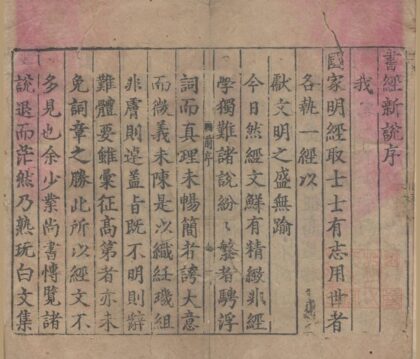 書經新說序
我
國家明經取士士有志用世者
各執一經以
獻文明之盛無踰
今日然經文鮮有精緻非經
學獨難諸說紛紛繁者騁浮
詞而真理未暢簡者誇大意
而微義未陳是以織紝璣組
非膚則遠蓋旨既不明則辭
難體要雖彙征高第者亦未
免詞章之勝此所以經文不
多見也余少業尚書愽覽諸
說退而茫然乃熟玩白文集